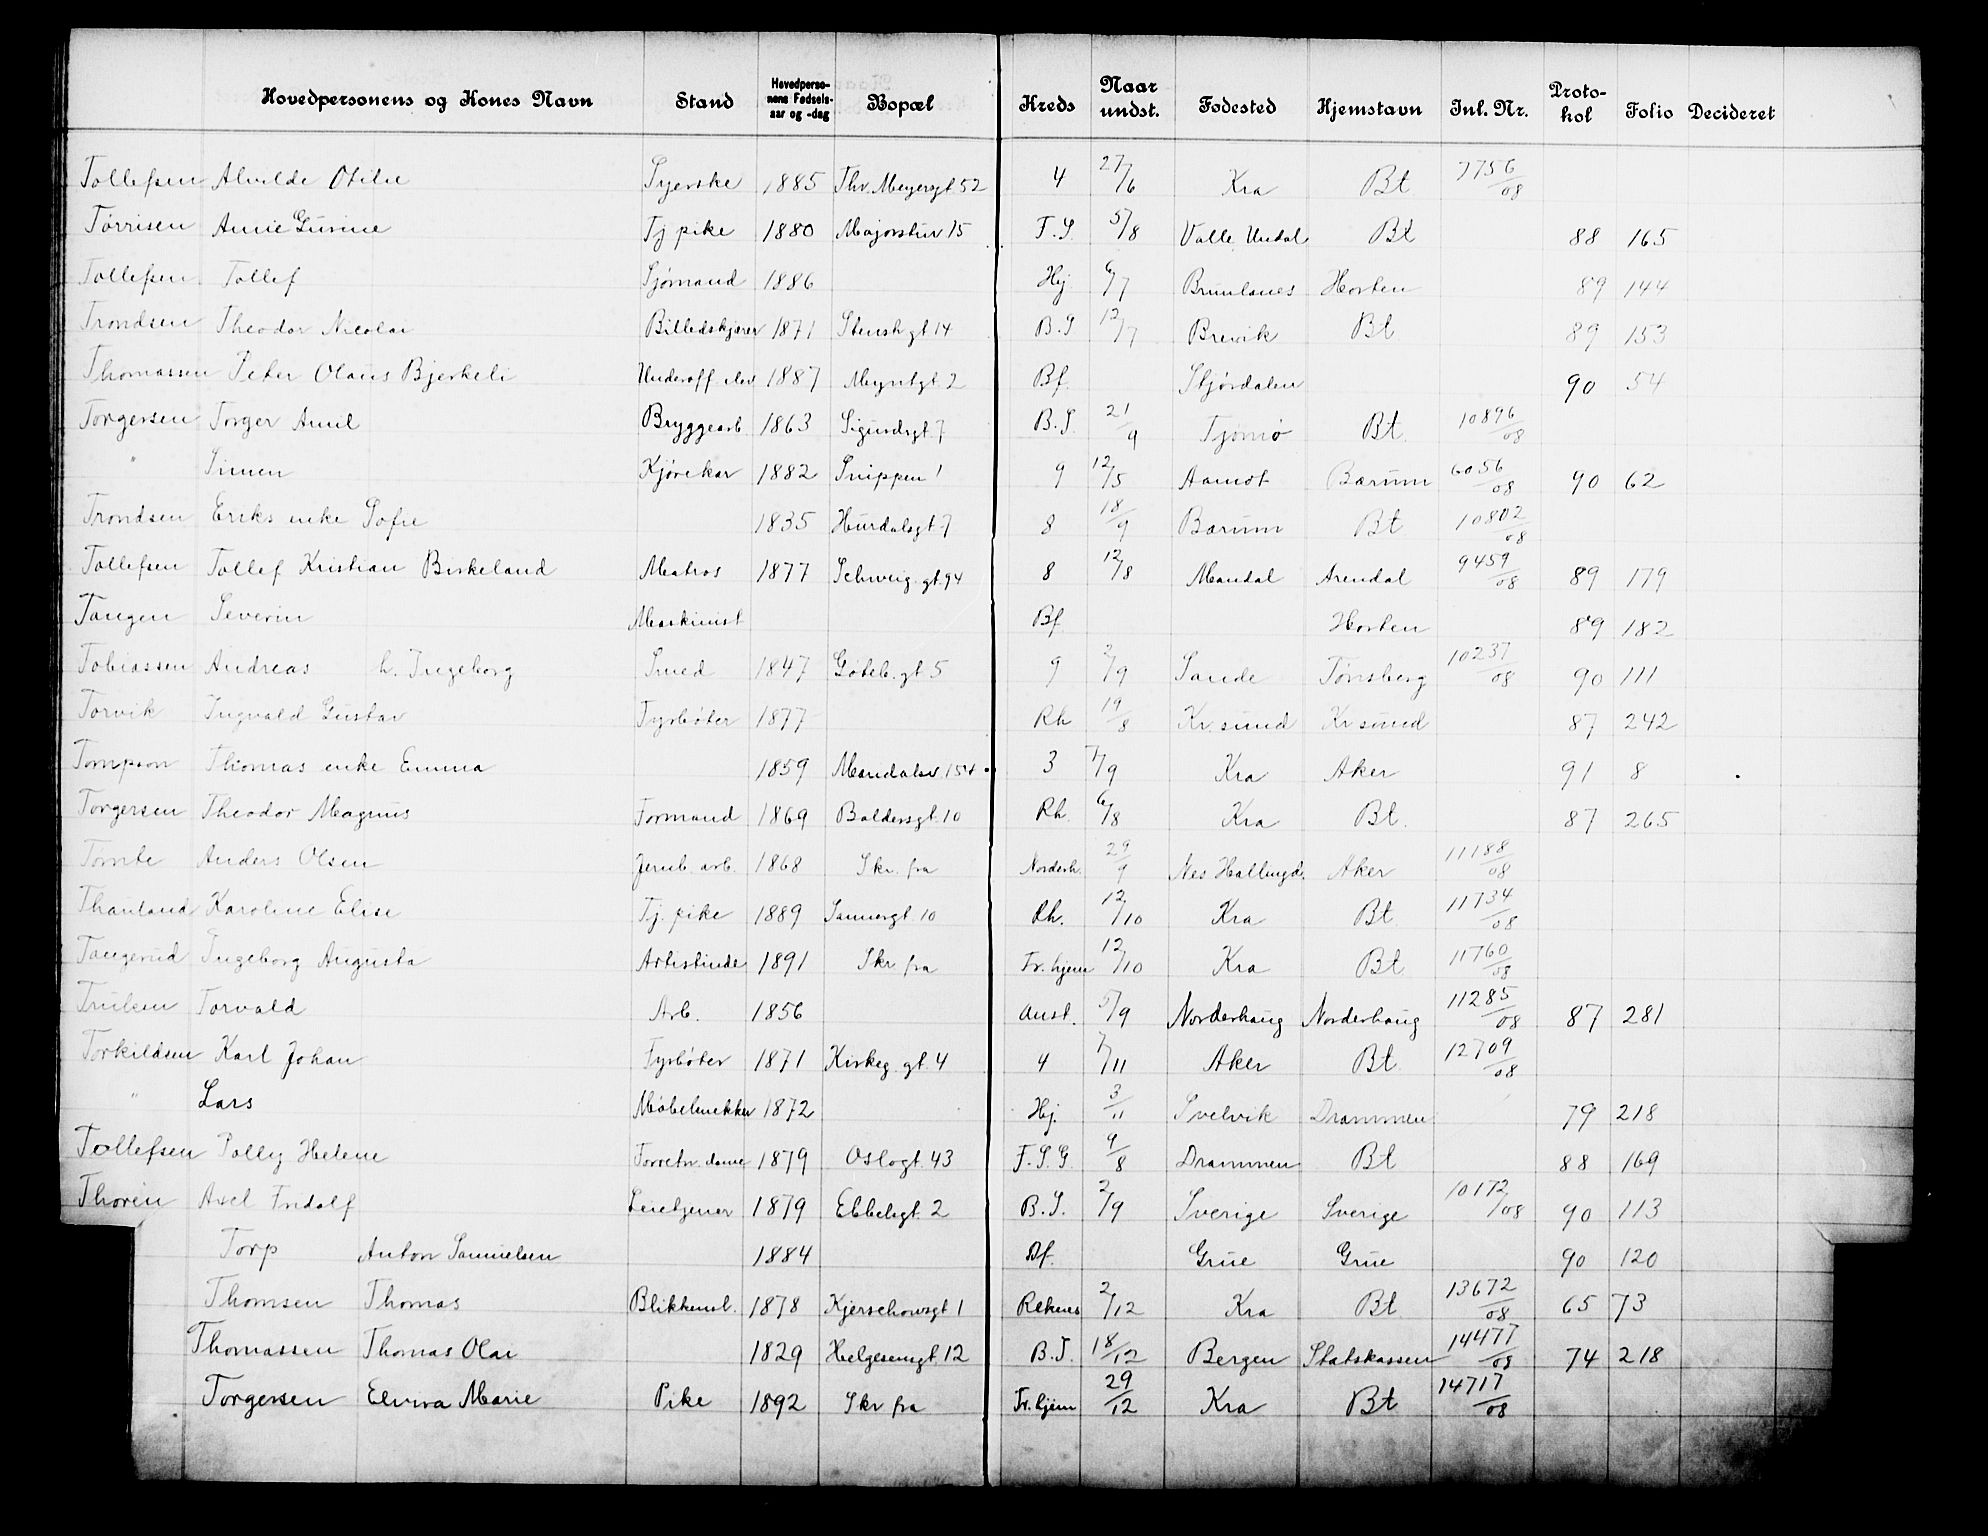 Hovedpersonens og Kones Navn Stand Hovedpersonens Fødselsaar og -dag Bopæl Kreds Naar undst. Fødested Hjemstavn Inl. Nr. Protokol Folio Decideret
Tollefsen Alvilde Otilie Syerske 1885 Thv. Meyersgt. 52 4 27/6 Kra Bt 7756/08
Tørrisen Anne Gurine Tj pike 1880 Majorstuv 15 F.S. 5/8 Valle Undal Bt 88 165
Tollefsen Tollef Sjømand 1886 Hj 6/7 Brunlanes Horten 89 144
Trondsen Theodor Nicolai Billedskjærer 1871 Stensb gt 14 B.S 12/7 Brevik Bt 89 153
Thomassen Peter Olaus Bjerkeli Underoff. elev 1887 Myntgt. 2 Bf. Stjørdalen 90 54
Torgersen Torger Amil Bryggearb. 1863 Sigurdsgt. 7 B.S. 21/9 Tjømø Bt. 10896/08
" Simen Kjørekar 1882 Snippen 1 9 12/5 Aamot Bærum 6056/08 90 62
Trondsen Eriks enke Sofie 1835 Hurdalsgt 7 8 18/9 Bærum Bt 10802/08
Tollefsen Tollef Kristian Birkeland Matros 1877 Schweig. gt. 94 8 12/8 Mandal Arendal 9459/08 89 179
Tangen Severin Maskinist Bf Horten 89 182
Tobiassen Andreas h. Ingeborg Smed 1847 Gøteb. gt. 5 9 2/9 Sande Tønsberg 10237/08 90 111
Torvik Ingvald Gustav Fyrbøter 1877 Rh 19/8 Kr. sund Kr sund 87 242
Tompson Thomas enke Emma 1859 Maridalsv. 154 3 7/9 Kra Aker 91 8
Torgersen Theodor Magnus Formand 1869 Baldersgt. 10 Rh. 6/8 Kra Bt. 87 265
Tomte Anders Olsen Jernb. arb. 1868 Skr. fra Norderh. 29/9 Nes Hallingd. Aker 11188/08
Thauland Karoline Elise Tj. pike 1889 Sannergt. 10 Rh. 12/10 Kra Bt 11734/08
Tangerud Ingeborg Augusta Artistinde 1891 Skr fra Fr. hjem 12/10 Kra Bt 11760/08
Trulsen Torvald Arb. 1856 Aust. 5/9 Norderhaug Norderhaug 11285/08 87 281
Torkildsen Karl Johan Fyrbøter 1871 Kirkeg. gt. 4 4 7/11 Aker Bt 12709/08
" Lars Møbelsnekker 1872 Hj. 3/11 Svelvik Drammen 79 218
Tollefsen Polly Helene Forretn. dame 1879 Oslogt. 43 F.S.G. 9/8 Drammen Bt 88 169
Thorén Axel Fridolf Leietjener 1879 Ebbelsgt. 2 B.S. 2/9 Sverige Sverige 10172/08 90 113
Torp Anton Samuelsen 1884 Bf. Grue Grue 90 120
Thomsen Thomas Blikkensl. 1878 Kjerschowsgt 1 2/12 Kra Bt 13672/08 65 73
Thomassen Thomas Olai 1829 Helgesensgt. 12 B.S. 18/12 Bergen Statskassen 14477/08 74 218
Torgersen Elvira Marie Pike 1892 Skr fra Fr. hjem 29/12 Kra Bt 14717/08